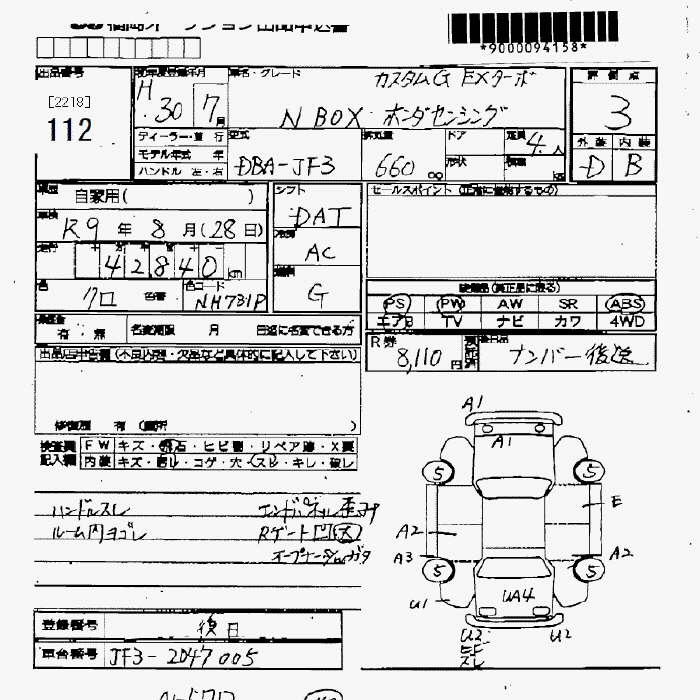 *9000094158*
出品番号
[2218]
112
初年度登録年月
H 30 7月
車名・グレード
カスタムG EXターボ
N BOX ホンダセンシング
評価点
3
外装 内装
D B
ディーラー・並行
モデル年式 年
ハンドル 左・右
型式
DBA-JF3
排気量
660 cc
ドア
形状
定員
4人
積載
kg
車歴
自家用( )
車検
R9年 8月(28日)
走行
42840 km
色
クロ
色替
色コード
NH731P
シフト
DAT
冷房
AC
燃料
G
セールスポイント (正確に使用するもの)
装備品 (純正品に限る)
PS PW AW SR ABS
エアB TV ナビ カワ 4WD
有・無
名変期限 月 日迄に名変できる方
R券
8,110円
後日品
ナンバー後送
出品店申告欄 (不良内容・欠品など具体的に記入して下さい)
修復歴 有 (箇所 )
検査員
記入欄
FW キズ・飛石・ヒビ割・リペア跡・X要
内装 キズ・汚レ・コゲ・穴・スレ・キレ・破レ
ハンドルスレ
ルーム内ヨゴレ
エンドパネル歪ミ
Rゲート凹(大)
A1
A1
5 5
E
A2
A3 A2
5 5
U1
UA4
U2 U2
スレ
登録番号
後日
車台番号
JF3-2047005